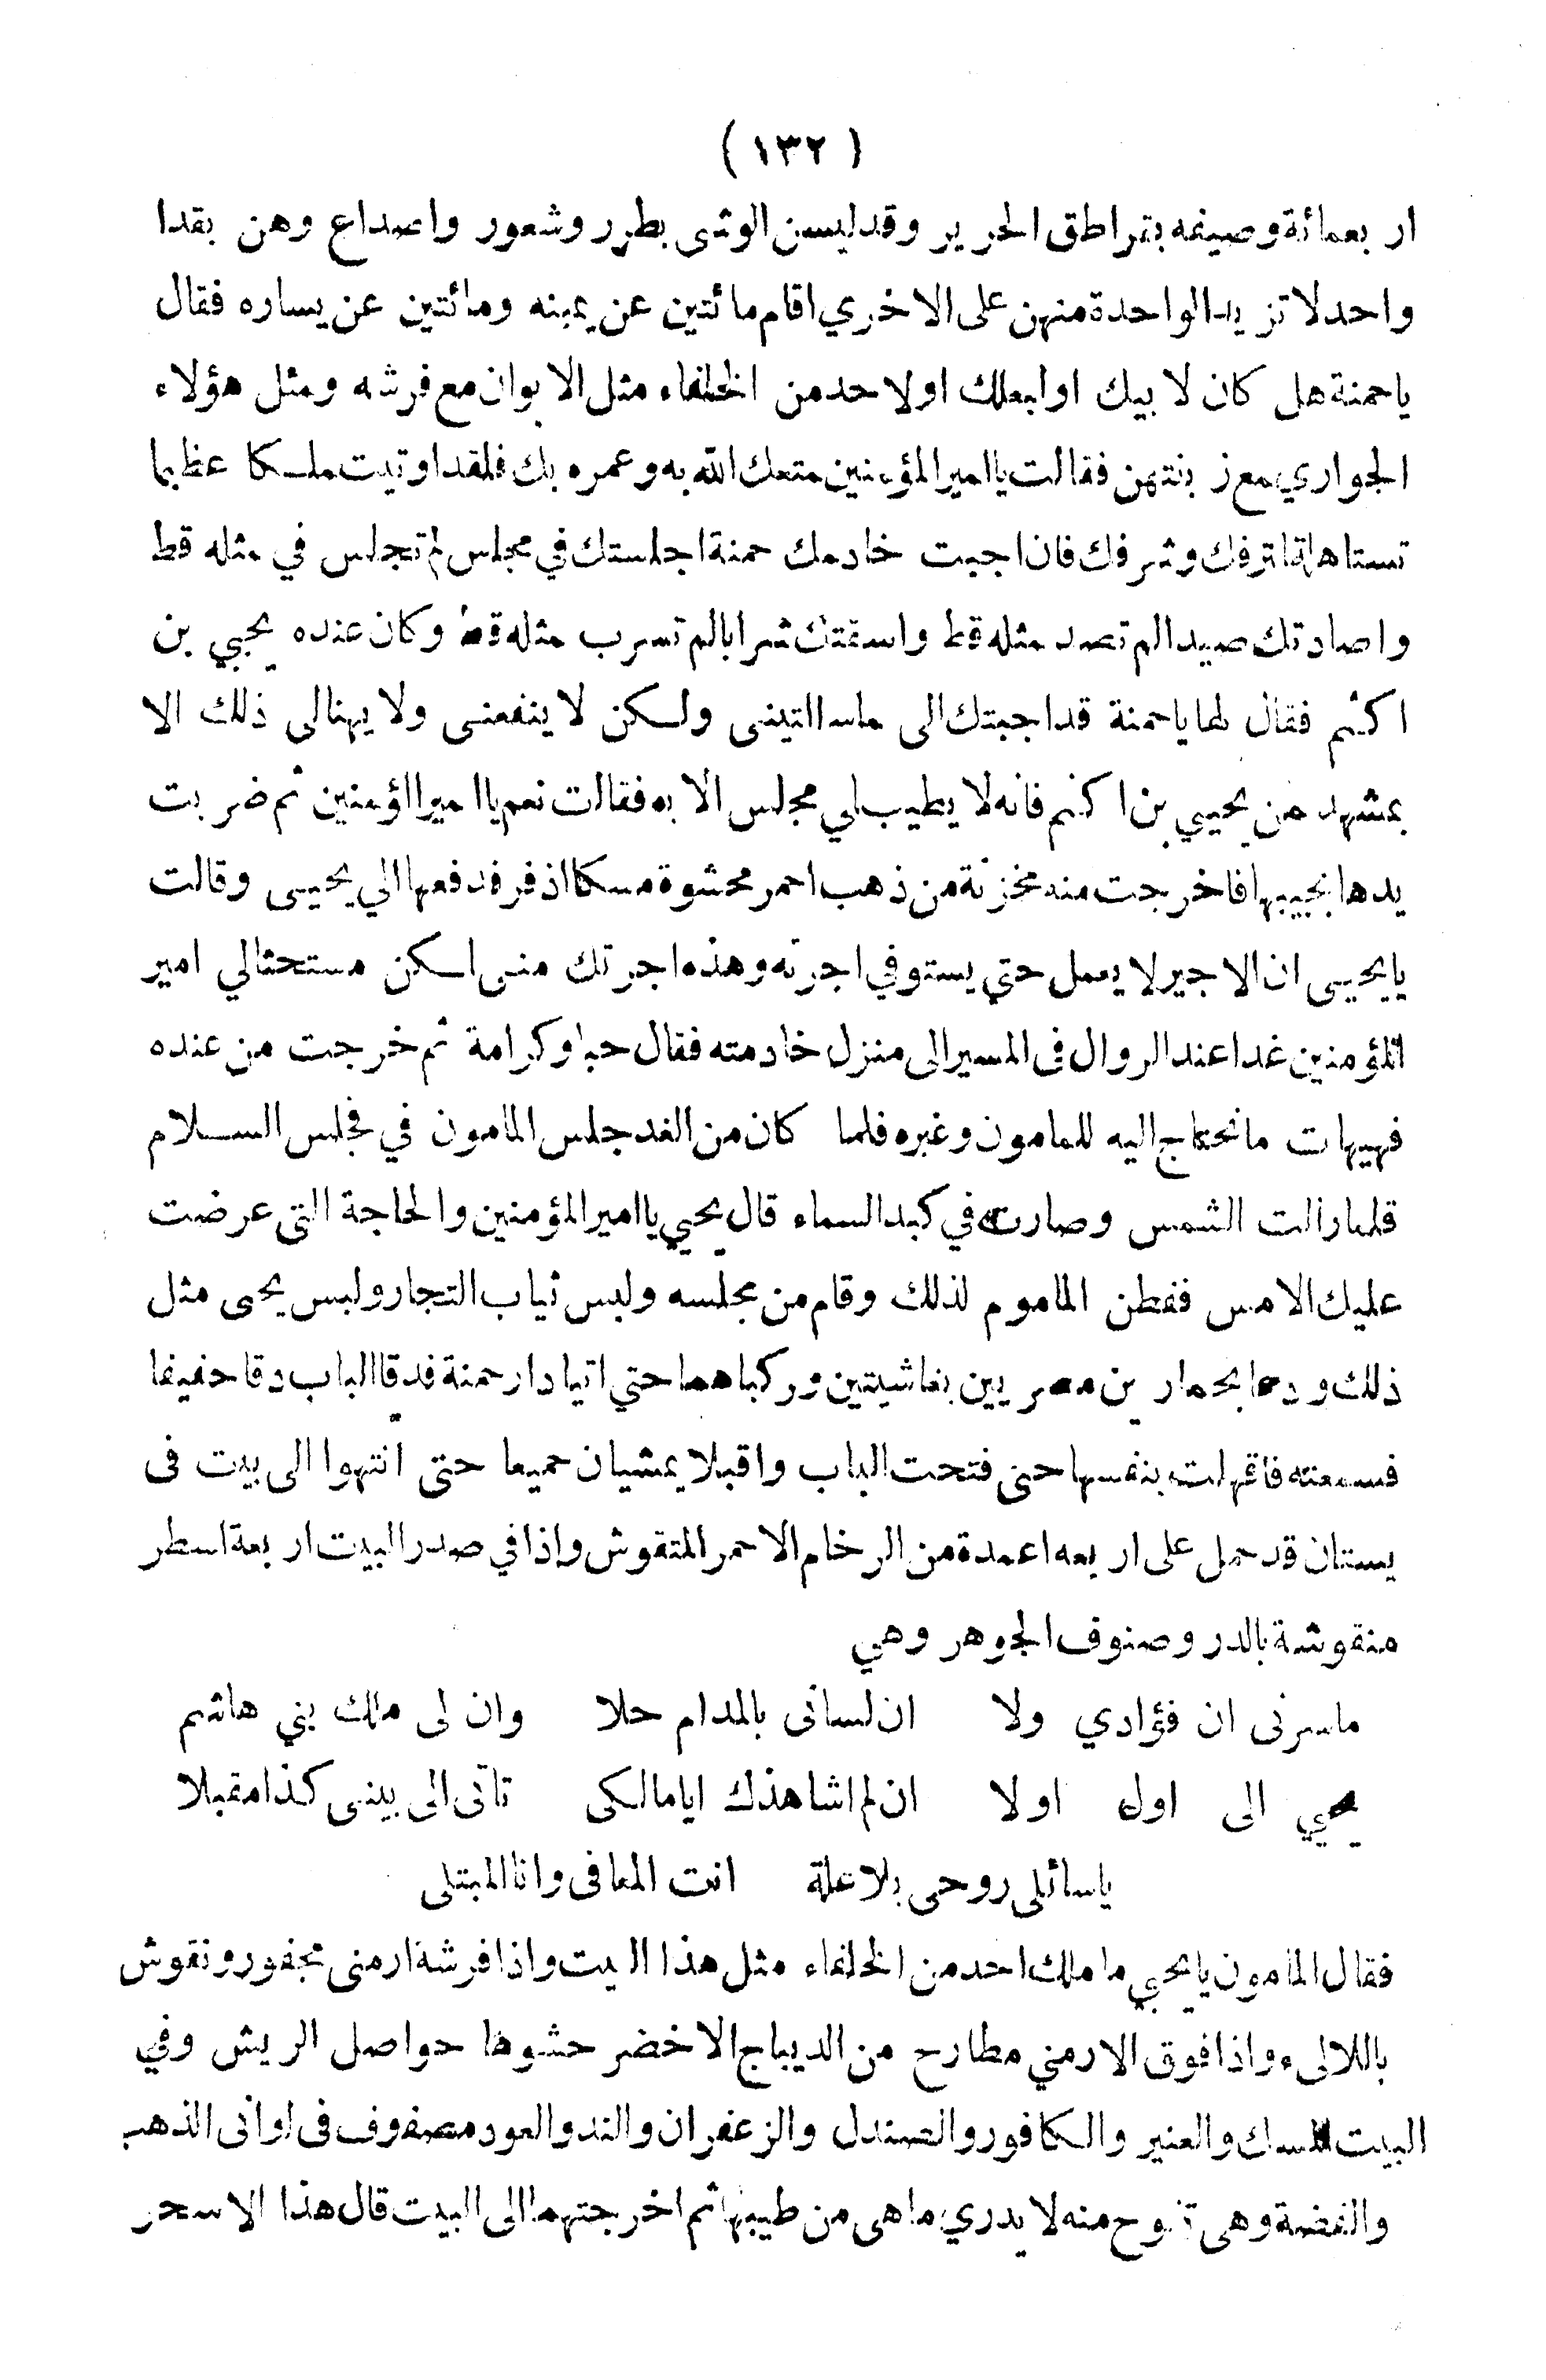 ( ١٣٢ )
اربعمائة وصيفه بقراطق الحرير وقد لبسن الوشى بطرر وشعور واصداع وهن بقدا
واحد لا تزيد الواحدة منهن على الاخري اقام مائتين عن يمينه ومائتين عن يساره فقال
ياحمنة هل كان لابيك او لبعلك او لاحد من الخلفاء مثل الايوان مع فرشه ومثل هؤلاء
الجواري مع زينتهن فقالت ياامير المؤمنين متعك الله به وعمره بك فلقد اوتيت ملكا عظيما
تستاهله لترفك وشرفك فان اجبت خادمك حمنة اجلستك في مجلس لم تجلس في مثله قط
واصادتك صيدا لم تصد مثله قط واسقتك شرابا لم تسرب مثله قط وكان عنده يحيي بن
اكثم فقال لها ياحمنة قد اجبتك الى ماساالتينى ولكن لا ينفعنى ولا يهنالى ذلك الا
بمشهد من يحيي بن اكثم فانه لا يطيب لي مجلس الا به فقالت نعم ياامير المؤمنين ثم ضربت
يدها بجيبها فاخرجت منه مخزنة من ذهب احمر محشوة مسكا اذفر فدفعها الي يحيى وقالت
يايحيى ان الاجير لا يعمل حتي يستوفي اجرته وهذه اجرتك منى اسكن مستحثالي امير
المؤمنين غدا عند الزوال فى المسير الى منزل خادمته فقال حبا وكرامة ثم خرجت من عنده
فهيهات مانحتاج اليه للمامون وغيره فلما كان من الغد جلس المامون في مجلس السلام
قلما زالت الشمس وصارت في كبد السماء قال يحيي ياامير المؤمنين والحاجة التى عرضت
عليك الامس ففطن المامون لذلك وقام من مجلسه ولبس ثياب التجار ولبس يحى مثل
ذلك ودعا بحمارين مصريين بغاشيتين وركباهما حتي اتيا دار حمنة فدقا الباب دقا خفيفا
فسمعته فاقبلت بنفسها حتى فتحت الباب واقبلا يمشيان جميعا حتى انتهوا الى بيت فى
يستان قد حمل على اربعه اعمدة من الرخام الاحمر المنقوش واذا في صدر البيت اربعة اسطر
منقوشة بالدر وصنوف الجوهر وهي
ماسرنى ان فؤادي ولا ان لسانى بالمدام حلا وان لى ملك بني هاشم
يحيي الى اول اولا ان لم اشاهدك ايا مالكى تاتى الى بيتى كذا مقبلا
ياسائلى روحى بلاعلة انت المعافى وانا المبتلى
فقال المامون يايحيي ما ملك احد من الخلفاء مثل هذا البيت واذا فرشة ارمنى محفور ونقوش
باللالىء واذا فوق الارمني مطارح من الديباج الاخضر حشوها حواصل الريش وفي
البيت المسك والعنبر والكافور والصندل والزعفران والند والعود مصفوف فى اوانى الذهب
والفضة وهى تفوح منه لا يدري ماهى من طيبها ثم اخرجتهما الى البيت قال هذا الاسحر